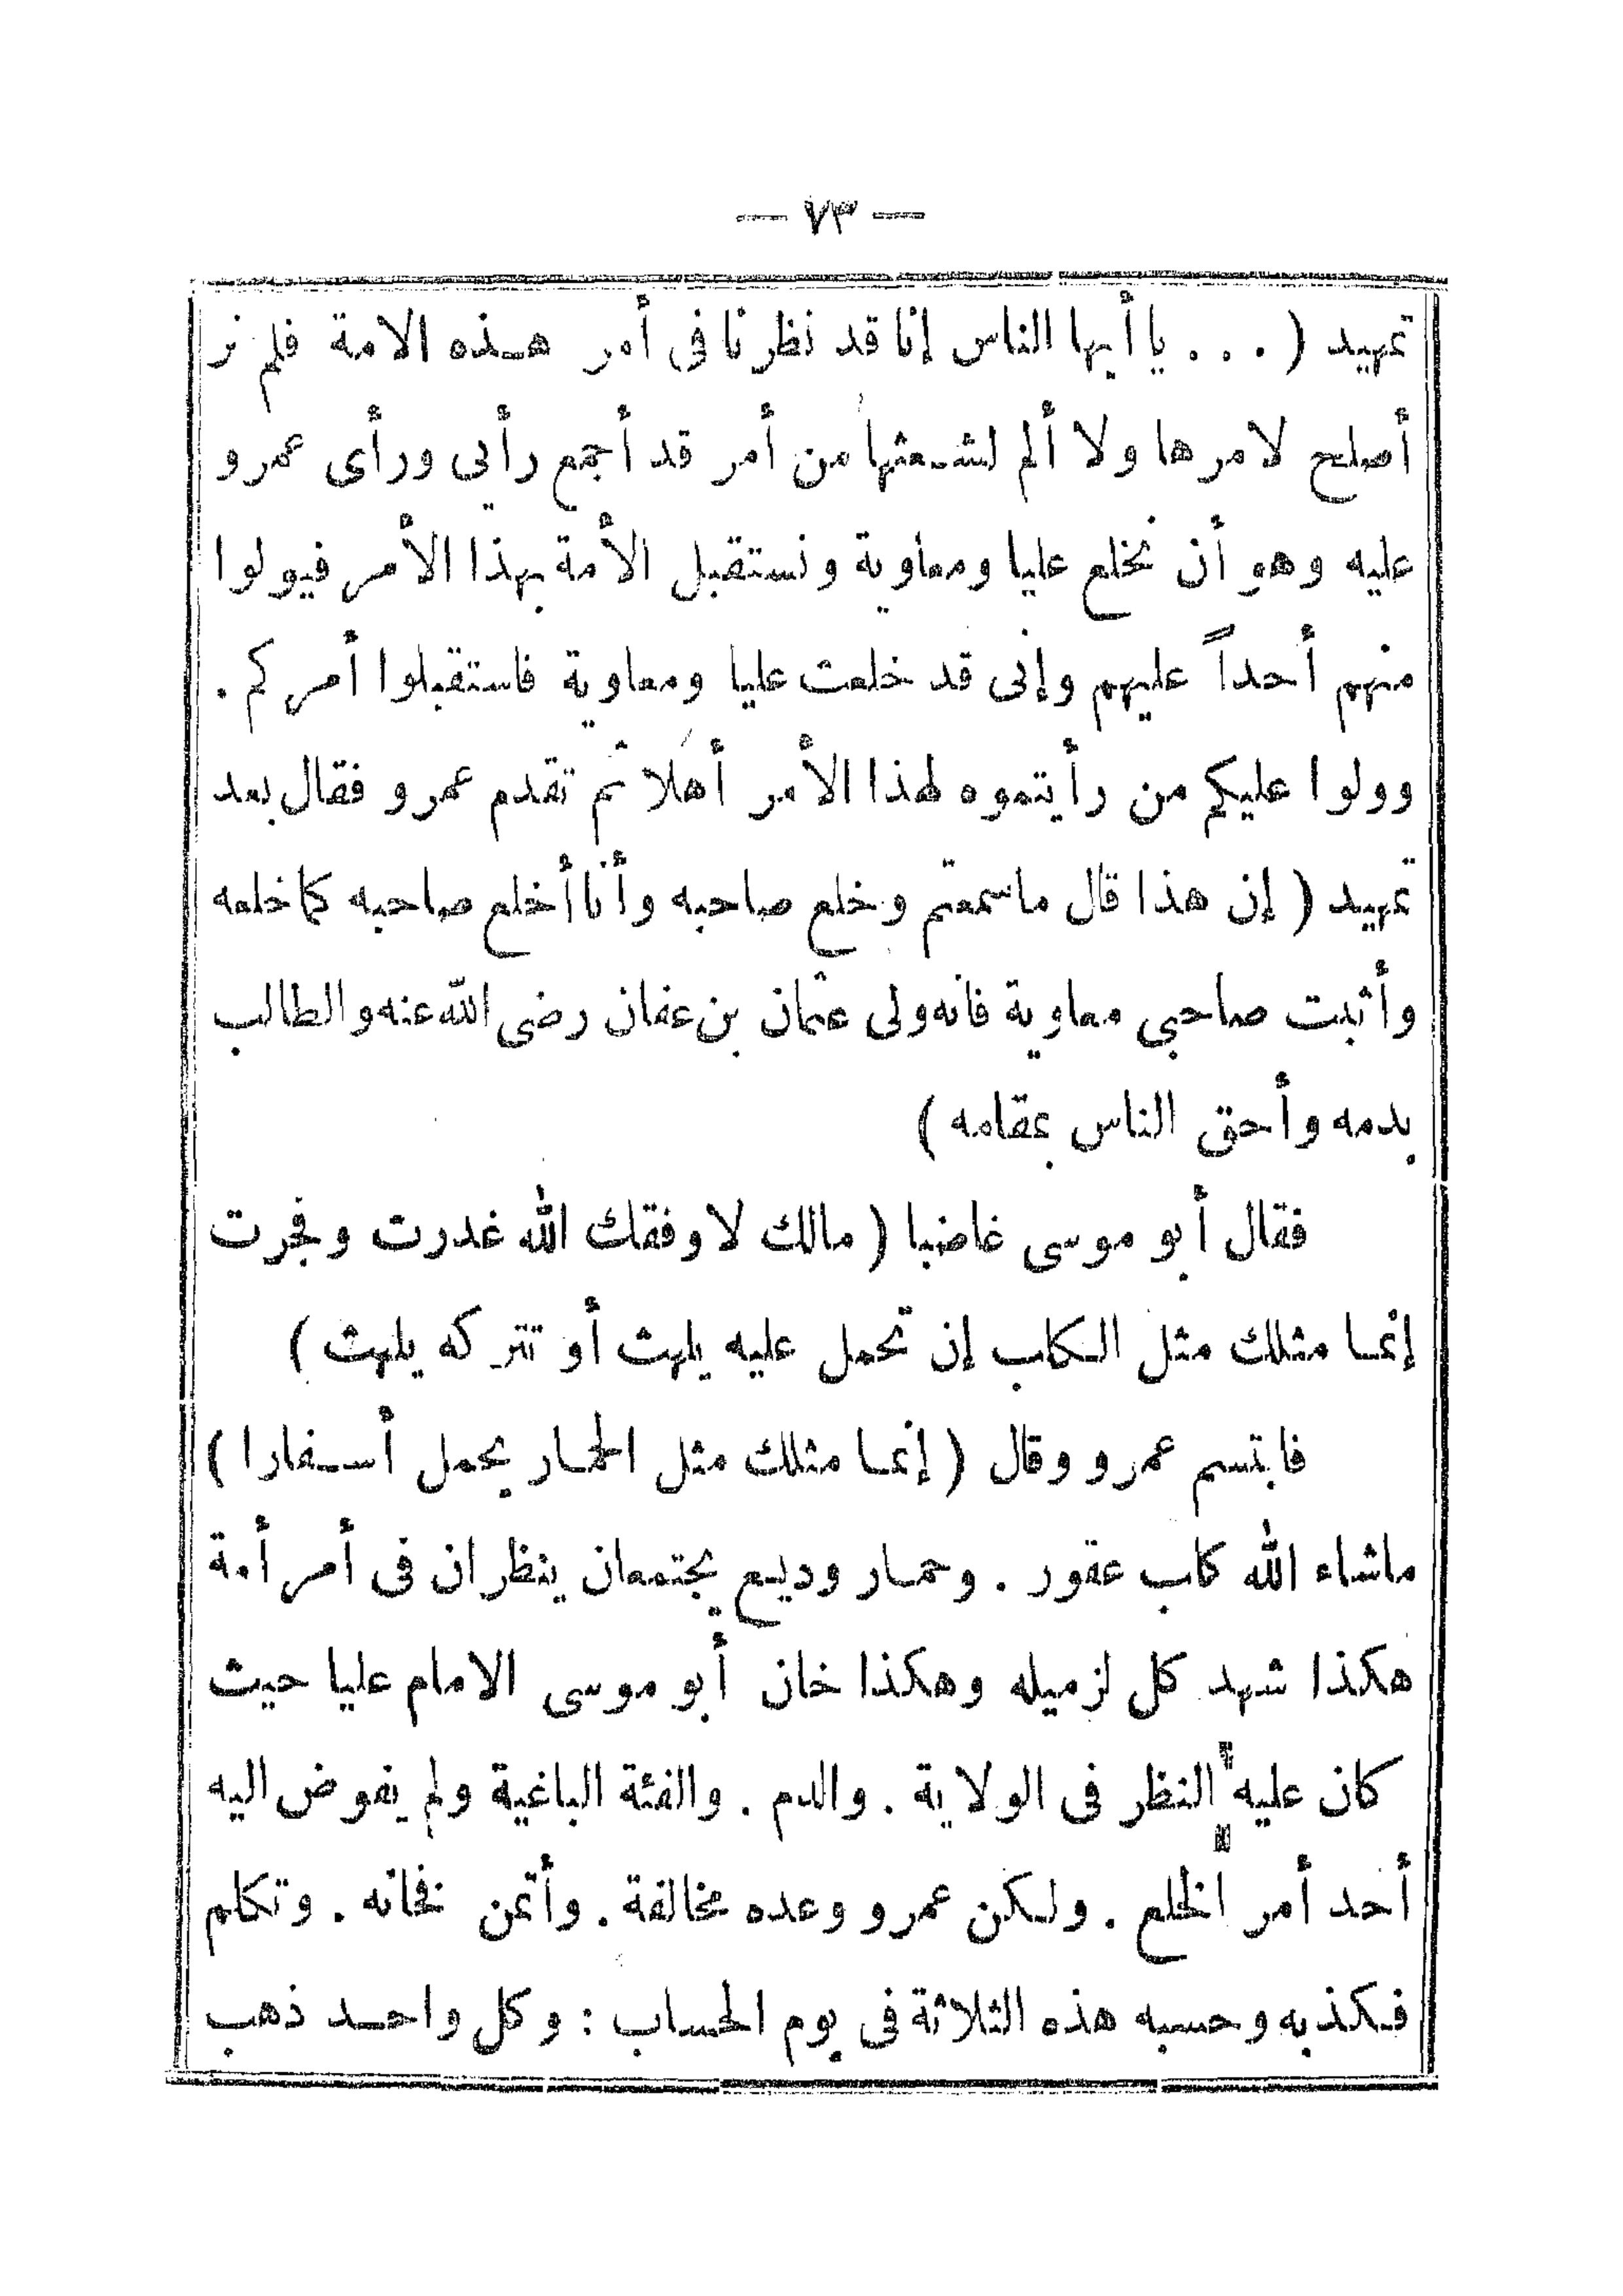 — ٧٣ —
تمهيد ( . . . يا أيها الناس إنا قد نظرنا فى أمر هـذه الامة فلم نر
أصلح لامرها ولا ألم لشـعثها من أمر قد أجمع رأيى ورأى عمرو
عليه وهو أن نخلع عليا ومعاوية ونستقبل الأمة بهذا الأمر فيولوا
منهم أحداً عليهم وإنى قد خلعت عليا ومعاوية فاستقبلوا أمركم .
وولوا عليكم من رأيتموه لهذا الأمر أهلا ثم تقدم عمرو فقال بعد
تمهيد ( إن هذا قال ماسمعتم وخلع صاحبه وأنا أخلع صاحبه كما خلعه
وأثبت صاحبي معاوية فانه ولى عثمان بن عفان رضى الله عنه والطالب
بدمه وأحق الناس بمقامه )
فقال أبو موسى غاضبا ( مالك لا وفقك الله غدرت وفجرت
إنما مثلك مثل الكلب إن تحمل عليه يلهث أو تتركه يلهث )
فابتسم عمرو وقال ( إنما مثلك مثل الحمار يحمل أسـفارا )
ماشاء الله كلب عقور . وحمار وديع يجتمعان ينظران فى أمر أمة
هكذا شهد كل لزميله وهكذا خان أبو موسى الامام عليا حيث
كان عليه النظر فى الولاية . والدم . والفئة الباغية ولم يفوض اليه
أحد أمر الخلع . ولكن عمرو وعده مخالفة . وأتمن فخانه . وتكلم
فكذبه وحسبه هذه الثلاثة فى يوم الحساب : وكل واحد ذهب